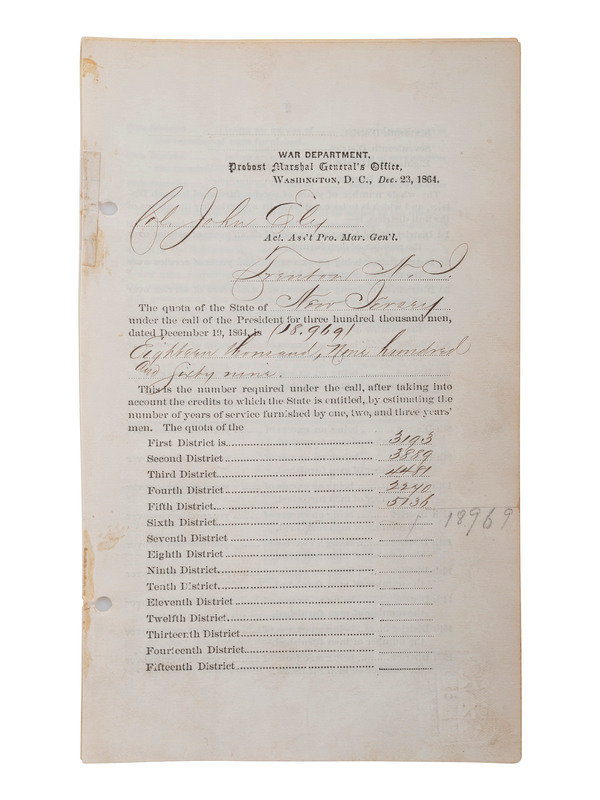 WAR DEPARTMENT,
Provost Marshal General's Office,
WASHINGTON, D. C., Dec. 23, 1864.
Col. John Ely
Act. Ass't Pro. Mar. Gen'l.
Trenton N. J
The quota of the State of New Jersey
under the call of the President for three hundred thousand men,
dated December 19, 1864, is (18.969)
Eighteen thousand, Nine hundred
and sixty nine.
This is the number required under the call, after taking into
account the credits to which the State is entitled, by estimating the
number of years of service furnished by one, two, and three years'
men. The quota of the
First District is 3193
Second District 3889
Third District 4481
Fourth District 2270
Fifth District 5136
Sixth District 18969
Seventh District
Eighth District
Ninth District
Tenth District
Eleventh District
Twelfth District
Thirteenth District
Fourteenth District
Fifteenth District